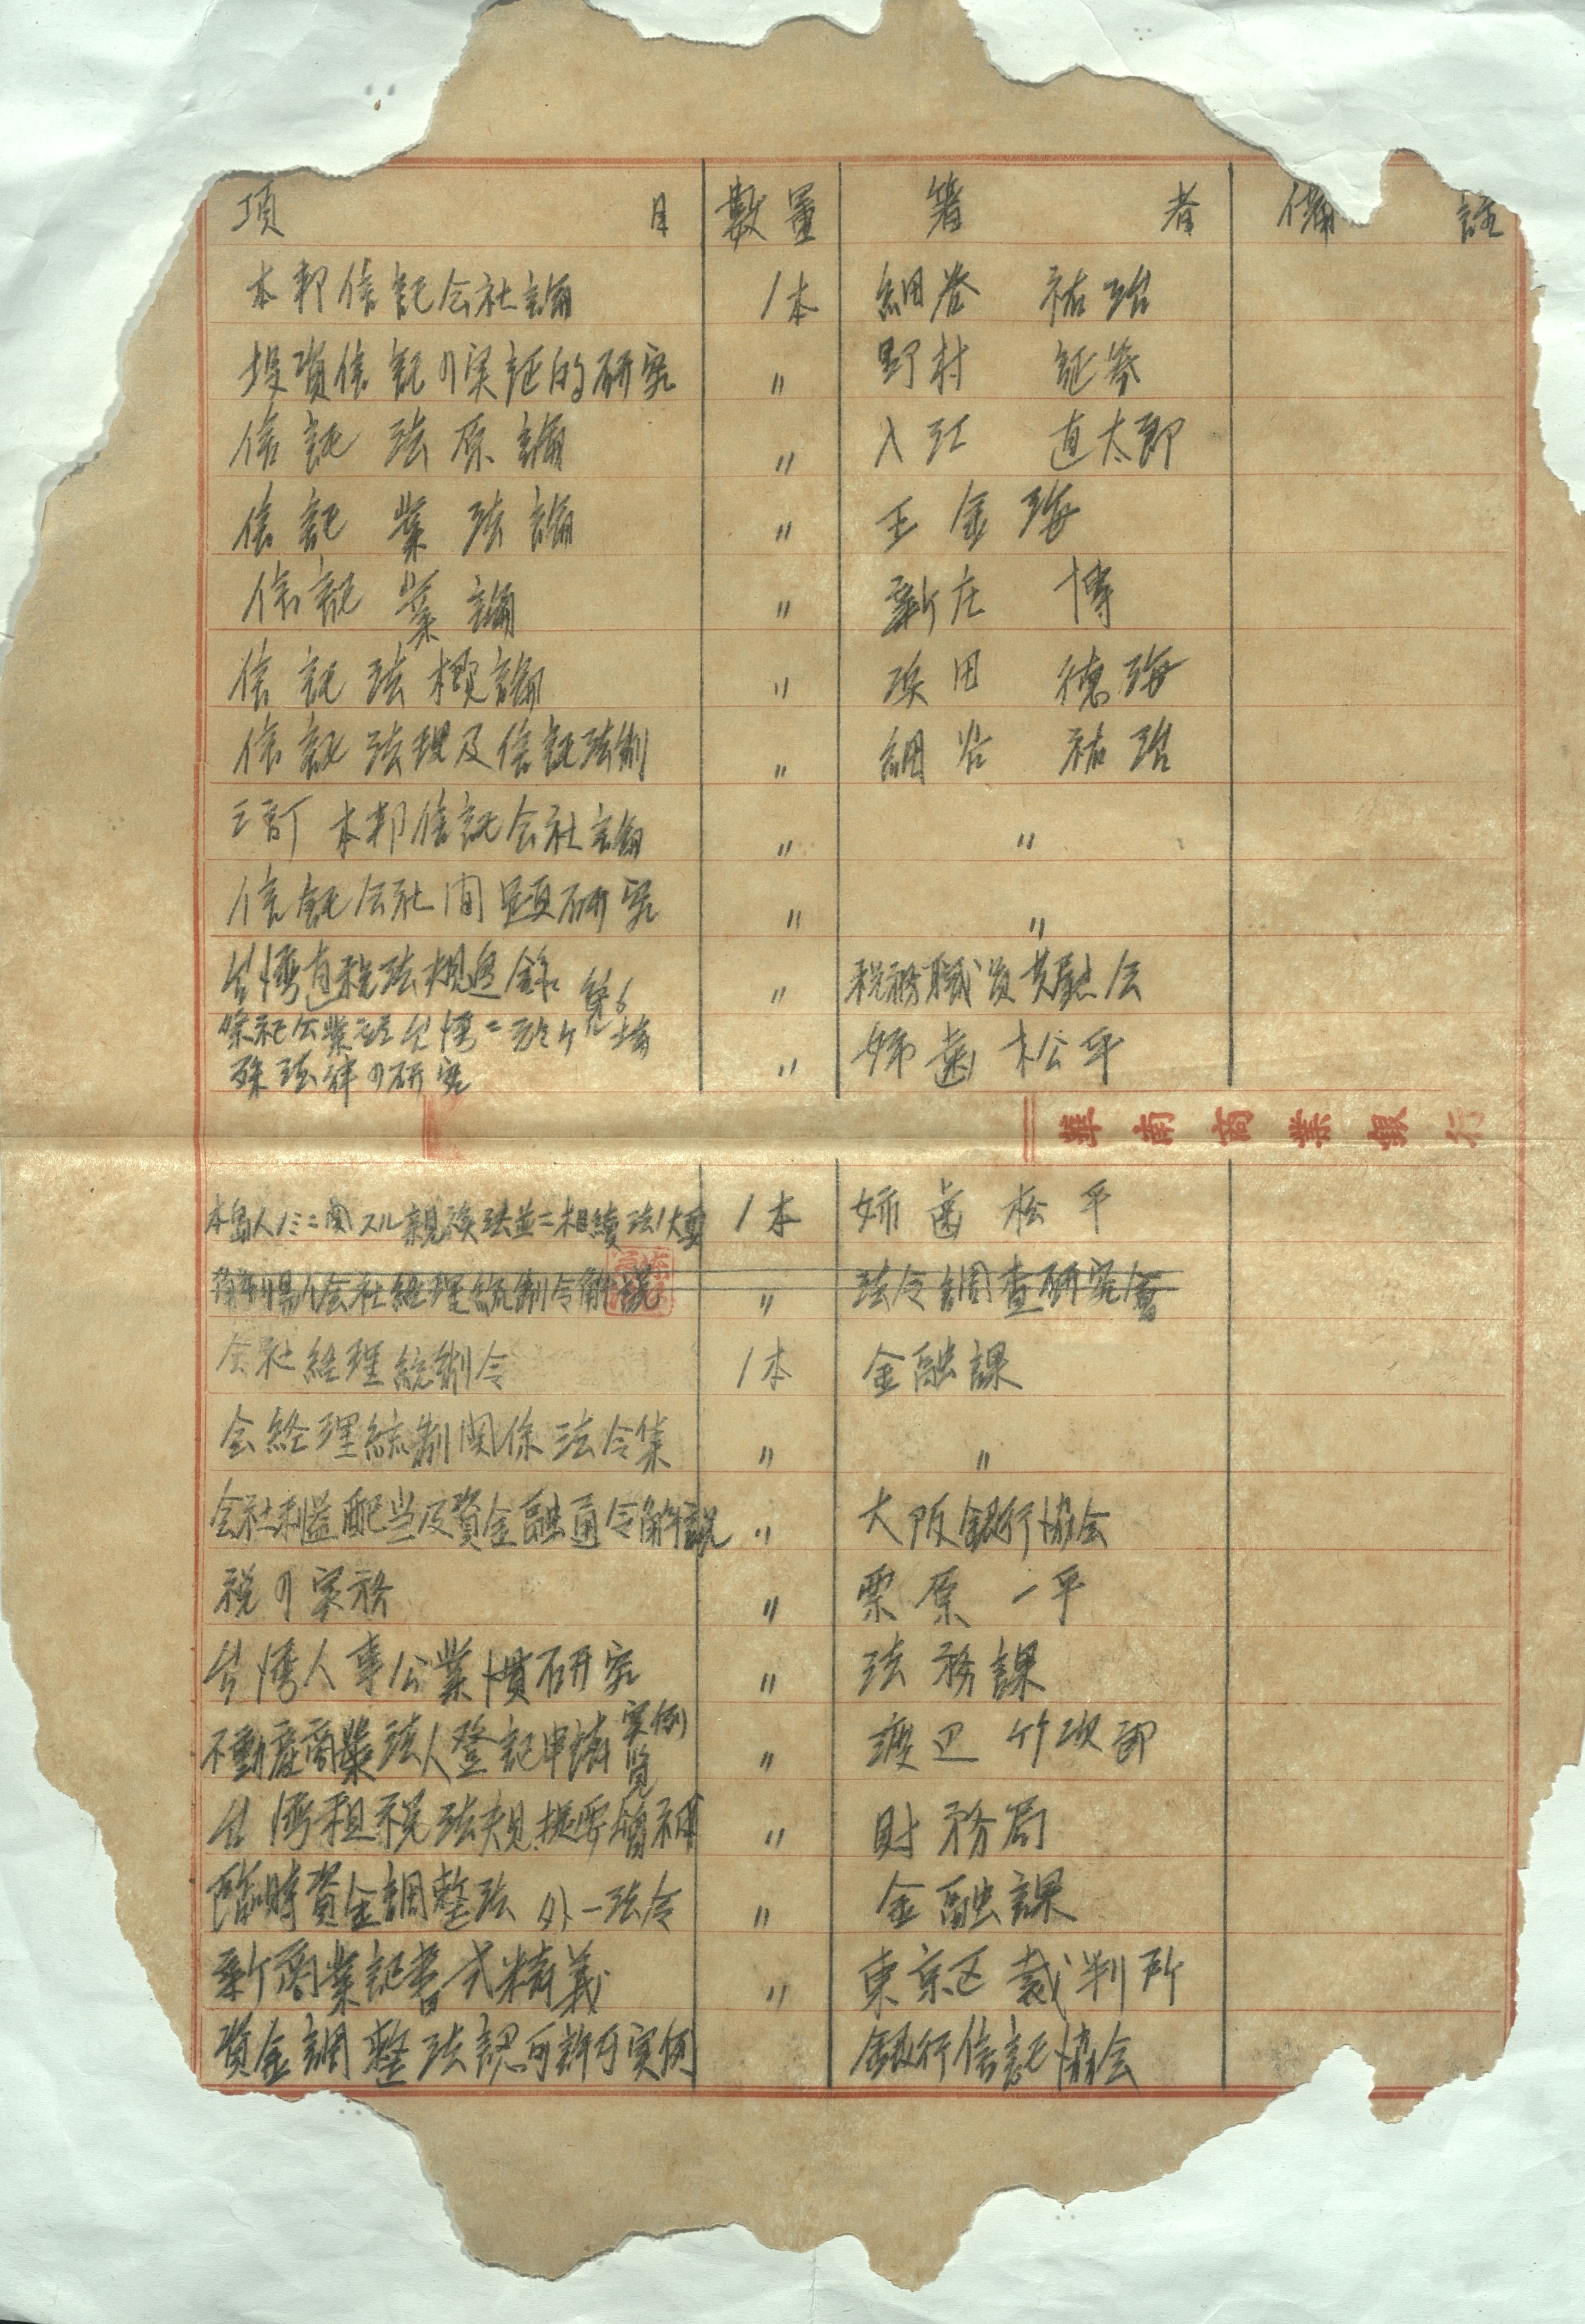 項目 數量 著者 備註
本邦信託会社論 1本 細谷 祐治
投資信託ノ実証的研究 〃 野村 証券
信託法原論 〃 入江 直太郎
信託業法論 〃 王金海
信託業論 〃 新庄 博
信託法概論 〃 浜田 徳海
信託法理及信託法制 〃 細谷 祐治
三訂 本邦信託会社論 〃 〃
信託会社問題研究 〃 〃
台湾直税法規逐錄 第6 〃 税務職員共慰会
祭祀公業並台湾ニ於ケル特
殊法律ノ研究 〃 姉歯松平
華南商業銀行
本島人ノミニ関スル親族法並ニ相續法ノ大要 1本 姉歯松平
会社経理統制令解説 〃 法令調査研究會
会社経理統制令 1本 金融課
会経理統制関係法令集 〃 〃
会社利益配当及資金融通令解説 〃 大阪銀行協会
税ノ実務 〃 栗原一平
台湾人事公業慣研究 〃 法務課
不動産商業法人登記申請実例覧 〃 渡辺竹次郎
台湾租税法規提要簡補 〃 財務局
臨時資金調整法 外一法令 〃 金融課
新商業記書式精義 〃 東京区裁判所
資金調整法認可許可実例 銀行信託協会